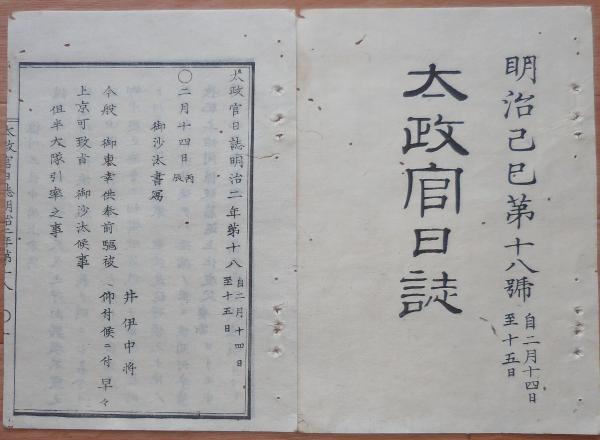 明治己巳第十八號
自二月十四日
至十五日
太政官日誌
太政官日誌明治二年第十八
自二月十四日
至十五日
〇二月十四日丙辰
御沙汰書寫
井伊中將
今般 御東幸供奉前驅被 仰付候ニ付早々
上京可致旨 御沙汰候事
但半大隊引率之事
太政官日誌明治二年第十八 〇一